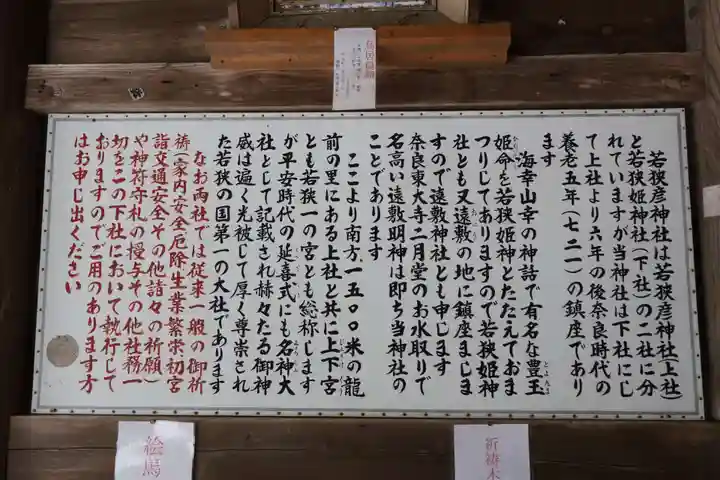 若狭彦神社は若狭彦神社(上社)
と若狭姫神社(下社)の二社に分
れていますが当神社は下社にし
て上社より六年の後奈良時代の
養老五年(七二一)の鎮座であり
ます
海幸山幸の神話で有名な豊玉
姫命を若狭姫神とたたえておま
つりしてありますので若狭姫神
社とも又遠敷の地に鎮座ましま
すので遠敷神社とも申します
奈良東大寺二月堂のお水取りで
名高い遠敷明神は即ち当神社の
ことであります
ここより南方一五〇〇米の龍
前の里にある上社と共に上下宮
とも若狭一の宮とも総称します
が平安時代の延喜式にも名神大
社として記載され赫々たる御神
威は遍く光被して厚く尊崇され
た若狭の国第一の大社であります
なお両社では従来一般の御祈
祷(家内安全厄除生業繁栄初宮
詣交通安全その他諸々の祈願)
や神符守札の授与その他社務一
切をこの下社において執行して
おりますのでご用のあります方
はお申し出ください
絵馬